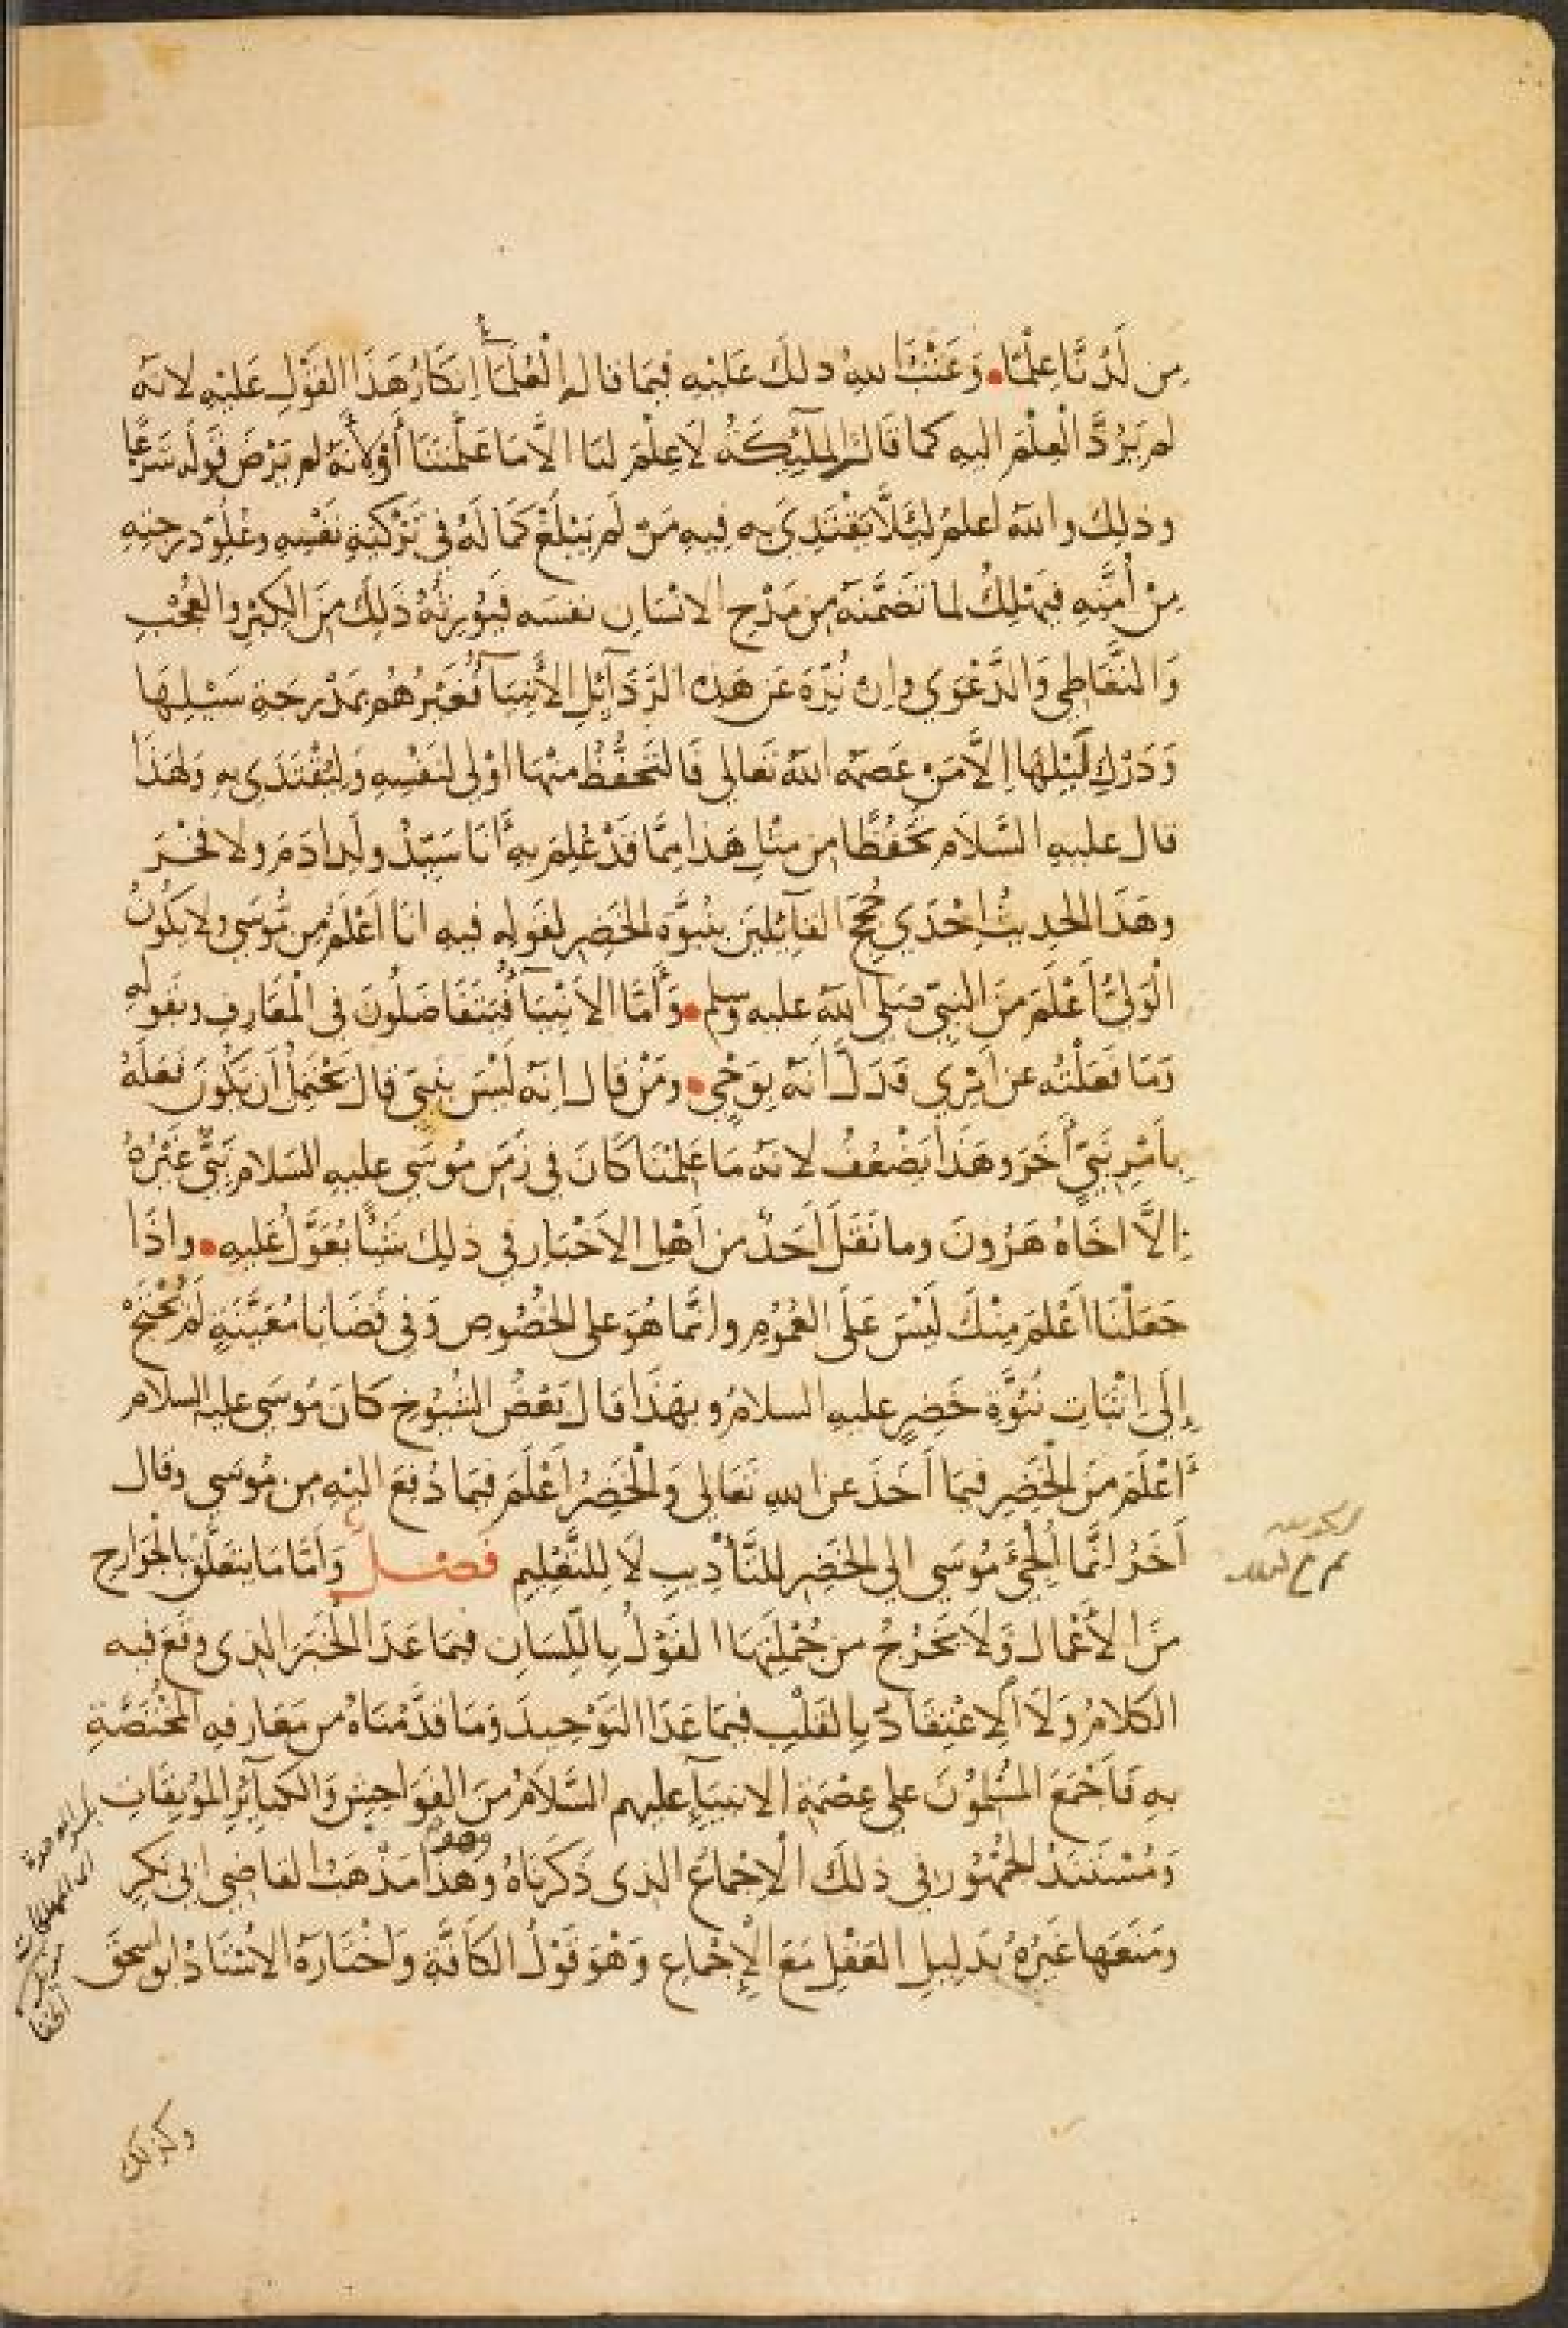 مِن لَدُنَّا عِلْمًا وَعَتْبُ اللهِ ذلِكَ عَلَيْهِ فيمَا قالهُ الْعُلَمَآءُ اِنكَارُ هَذَا القَوْلِ عَلَيْهِ لانهُ
لم يَرُدَّ الْعِلْمَ اليهِ كما قَالَتِ المَلَيِكَةُ لَا عِلْمَ لنَا الَّا مَا عَلَّمْتَنَا أَوْ لأَنَّهُ لم يَرْضَ قَولَه شَرْعًا
وذلِكَ والله اعلمُ لِئَلَّا يَقْتَدِيَ بهِ فِيهِ مَنْ لَم يَبْلُغْ كَمَالَهُ في تَزْكِيَةِ نَفْسِهِ وعُلُوِّ دَرجتِهِ
مِنْ أُمَّتِهِ فيَهْلِكُ لما تَضَمَّنَهُ مِن مَدْحِ الانْسَانِ نفسَه فيُورِثُهُ ذَلِكَ مِنَ الكِبْرِ والعُجْبِ
وَالتَّعَاطِي وَالدَّعْوَي وان نُزِّهَ عَن هَذِهِ الرَّذَآئِلِ الأَنْبِيَآءُ فَغَيرُهُم بمَدْرَجَةِ سَبِيلِهَا
وَدَرَكِ لَيْلِهَا اِلَّا مَنْ عَصَمَه اللهُ تعَالي فَالتَحفُّظُ مِنْهَا اوْلي لنَفْسِهِ وَليُقْتَدَى بهِ وَلهَذَا
قال عليهِ السَّلَام تحَفُّظًا مِن مِثْلِ هَذا مِمَّا قَدْ عُلِمَ بهِ أَنَا سَيِّدُ ولَدِ ادَمَ ولا فَخْرَ
وهَذَا الحديثُ اِحْدَي حُجَجِ القآئِلِينَ بنُبُوَّةِ الخَضِرِ لقَولِه فيهِ انَا اَعْلَمُ مِن مُوسَي ولا يَكُونُ
الْوَلِيُّ اَعْلَمَ مِنَ النبِيِّ صَلي اللهُ عليه وسلم وَأَمَّا الاَنْبيَآءُ فَيَتَفَاضَلُونَ في الْمَعَارِفِ وبقَولِهِ
وَمَا فَعَلْتُه عن اَمْرِي فَدَلَّ اَنهُ بِوَحْيٍ ومَنْ قال اِنهُ لَيْسَ بنَبيّ قال يَحْتَمِلُ اَن يَكُونَ فَعَلَهُ
بِاَمْرِ نَبِيٍّ أَخَرَ وهَذَا يَضْعُفُ لانهُ مَا عَلِمْنَا كَانَ في زَمَنِ مُوسَي عليهِ السَلام نَبِيٌّ غَيْرُهُ
اِلَّا اخَاهُ هَرُونَ وما نَقَلَ اَحَدٌ مِن اَهْلِ الاَخْبَارِ في ذلِكَ شَيْئًا يُعَوَّلُ عَليهِ واذَا
جَعَلْنَا اَعْلَمَ مِنْكَ لَيْسَ عَلَى العُمُومِ وانَّما هُوَ على الخُصُوصِ وَفي قَضَايَا مُعَيَّنَةٍ لَم تَحْتَجْ
اِلَي اِثْبَاتِ نُبُوَّةِ خَضِرٍ عليهِ السلامُ وبهَذَا قالَ بَعْضُ الشُيُوخِ كانَ مُوسَي عليه السلام
أَعْلَمَ مِنَ الْخَضِرِ فيمَا اَخَذَ عن اللهِ تَعَالي وَالْخَضِرُ اَعْلَمَ فيمَا دُفِعَ اليْهِ مِن مُوسَي وقال
اَخَرُ انَّما اُلْجِئَ مُوسَي الي الخَضِرِ للتَّأدِيبِ لَا لِلتَّعْلِيمِ فصـــلٌ وَاَمَّا مَا يتَعَلَّقُ بالجَوَارِحِ
مِنَ الأَعْمالِ وَلَا يَخْرُجُ مِن جُمْلَتِهَا القَوْلُ بِاللِّسَانِ فيمَا عَدَا الْخَبَرَ الذِى وقَعَ فيه
الكَلامُ وَلَا اَلِاعْتِقَادُ بالقَلْبِ فيمَا عَدَا التَوْحِيدَ وَمَا قدَّمْنَاهُ مِن مَعَارِفِهِ المُخْتَصَّةِ
بهِ فَاَجْمَعَ المُسْلِمُونَ علي عِصْمَةِ الانبيَآءِ عليهم السَّلَامُ مِنَ الفَوَاحِشِ وَالكَبآئِرِ المُوبِقَاتِ
وَمُسْتَنَدُ الجُمْهُورِ في ذلِكَ الْاِجْماعُ الذى ذَكَرْنَاهُ وَهَذَا مَذْهَبُ القاضِي ابي بَكرٍ
وهو
ومَنَعَها غَيرُهُ بدَلِيلِ العَقْلِ مَعَ الْاِجْماعِ وَهُوَ قَوْلُ الكَافَّةِ وَاخْتَارَهُ الاُسْتَاذُ ابو اسحَقَ
وكذلك